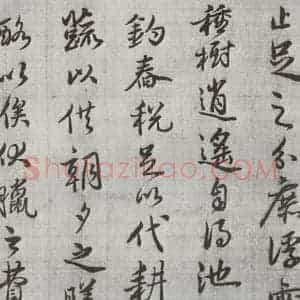 止足之分庶浮雲
種樹逍遙自得池
釣舂稅足以代耕
蔬以供朝夕之膳
酪以俟伏臘之費